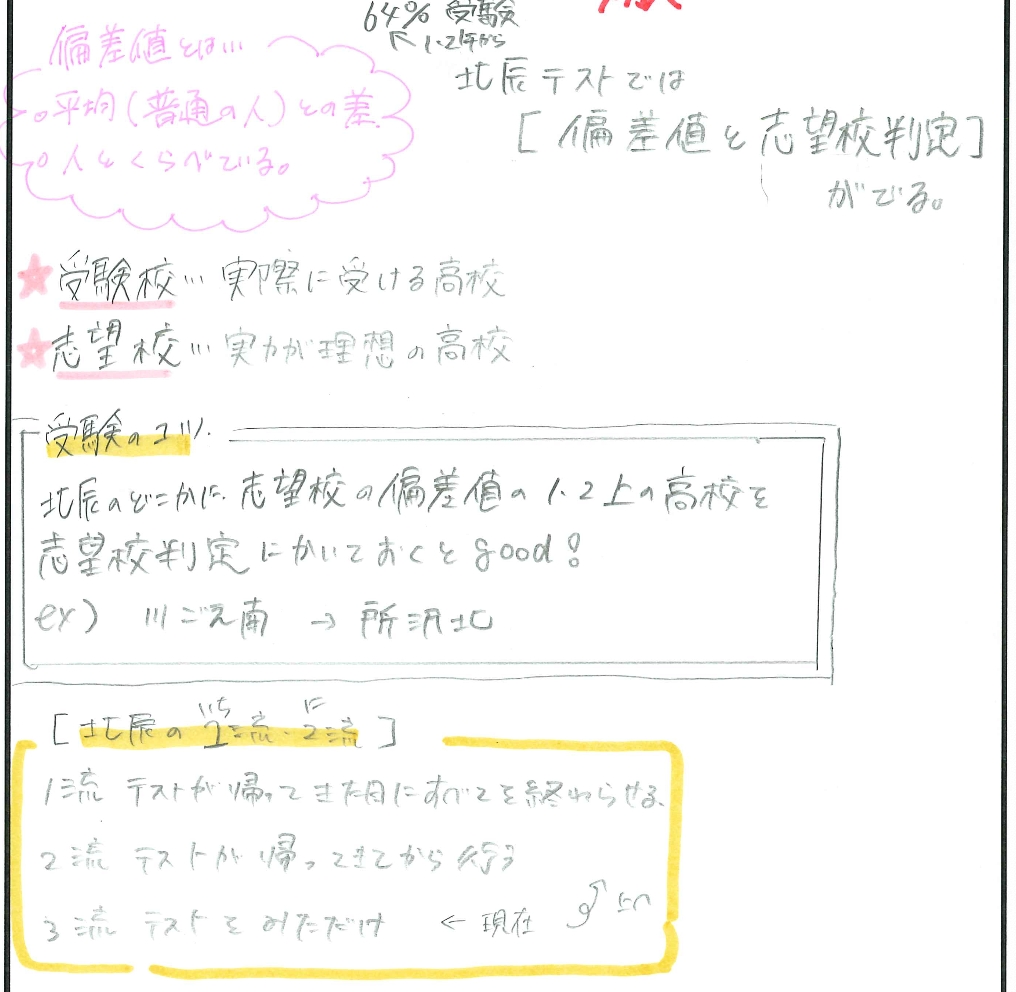 64% 受験
↖ 1.2年から
偏差値とは…
○平均(普通の人)との差
○人とくらべている。
北辰テストでは
[偏差値と志望校判定]
がでる。
★受験校… 実際に受ける高校
★志望校… 実力が理想の高校
受験のコツ
北辰のどこかに志望校の偏差値の1.2上の高校を
志望校判定にかいておくとgood!
ex) 川ごえ南 → 所沢北
[北辰の1流・2流]
いち に
1流 テストが帰ってきた日にすべてを終わらせる
2流 テストが帰ってきてから行う
3流 テストをみただけ ← 現在 上へ